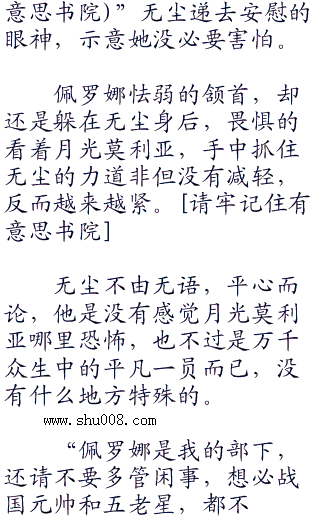 意思书院)”无尘递去安慰的
眼神，示意她没必要害怕。
佩罗娜怯弱的颔首，却
还是躲在无尘身后，畏惧的
看着月光莫利亚，手中抓住
无尘的力道非但没有减轻，
反而越来越紧。[请牢记住有
意思书院]
无尘不由无语，平心而
论，他是没有感觉月光莫利
亚哪里恐怖，也不过是万千
众生中的平凡一员而已，没
有什么地方特殊的。
www.shu008.com
“佩罗娜是我的部下，
还请不要多管闲事，想必战
国元帅和五老星，都不